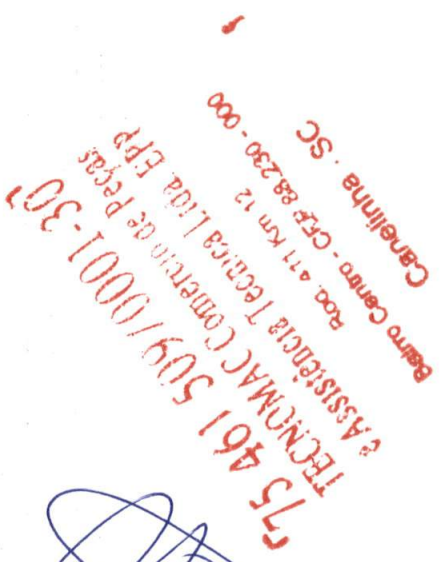 75 461 509/0001-30
TECNOMAC Comercio de Peças
e Assistência Tecnica Ltda. EPP
Rod. 411 Km 12
Bairro Centro - CEP 88.230 - 000
Canelinha . SC